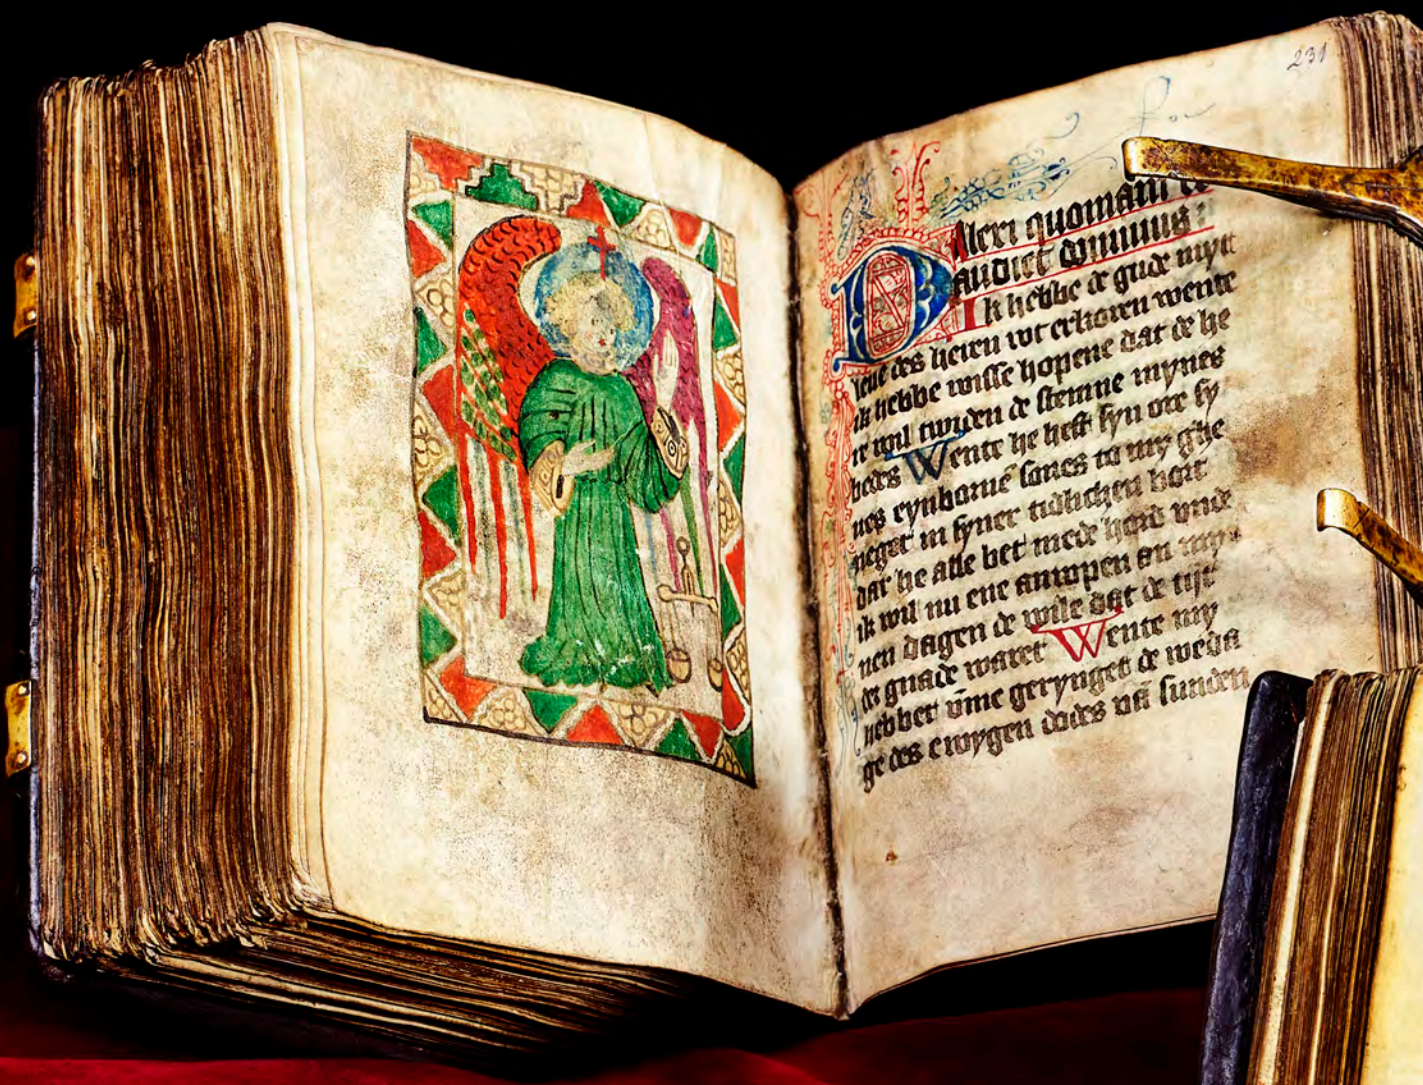 231
Dilexi quoniam ex
audiet dominus v
Ik hebbe de gude myn
leue des heren vot erkoren wente
ik hebbe wisse hopene dat de he
re wil twyden de stemme mynes
bedes Wente he heft syn ore sy
nes eynborne sones to my ghe
neget in syner tidlichen bort
dat he alle bet mede hord vnde
ik wil nu ene anropen an myn
nen dagen de wile dat de tijt
der gnade waret Wente my
hebbet vme gerynget de weda
ge des ewygen dodes vn sunden